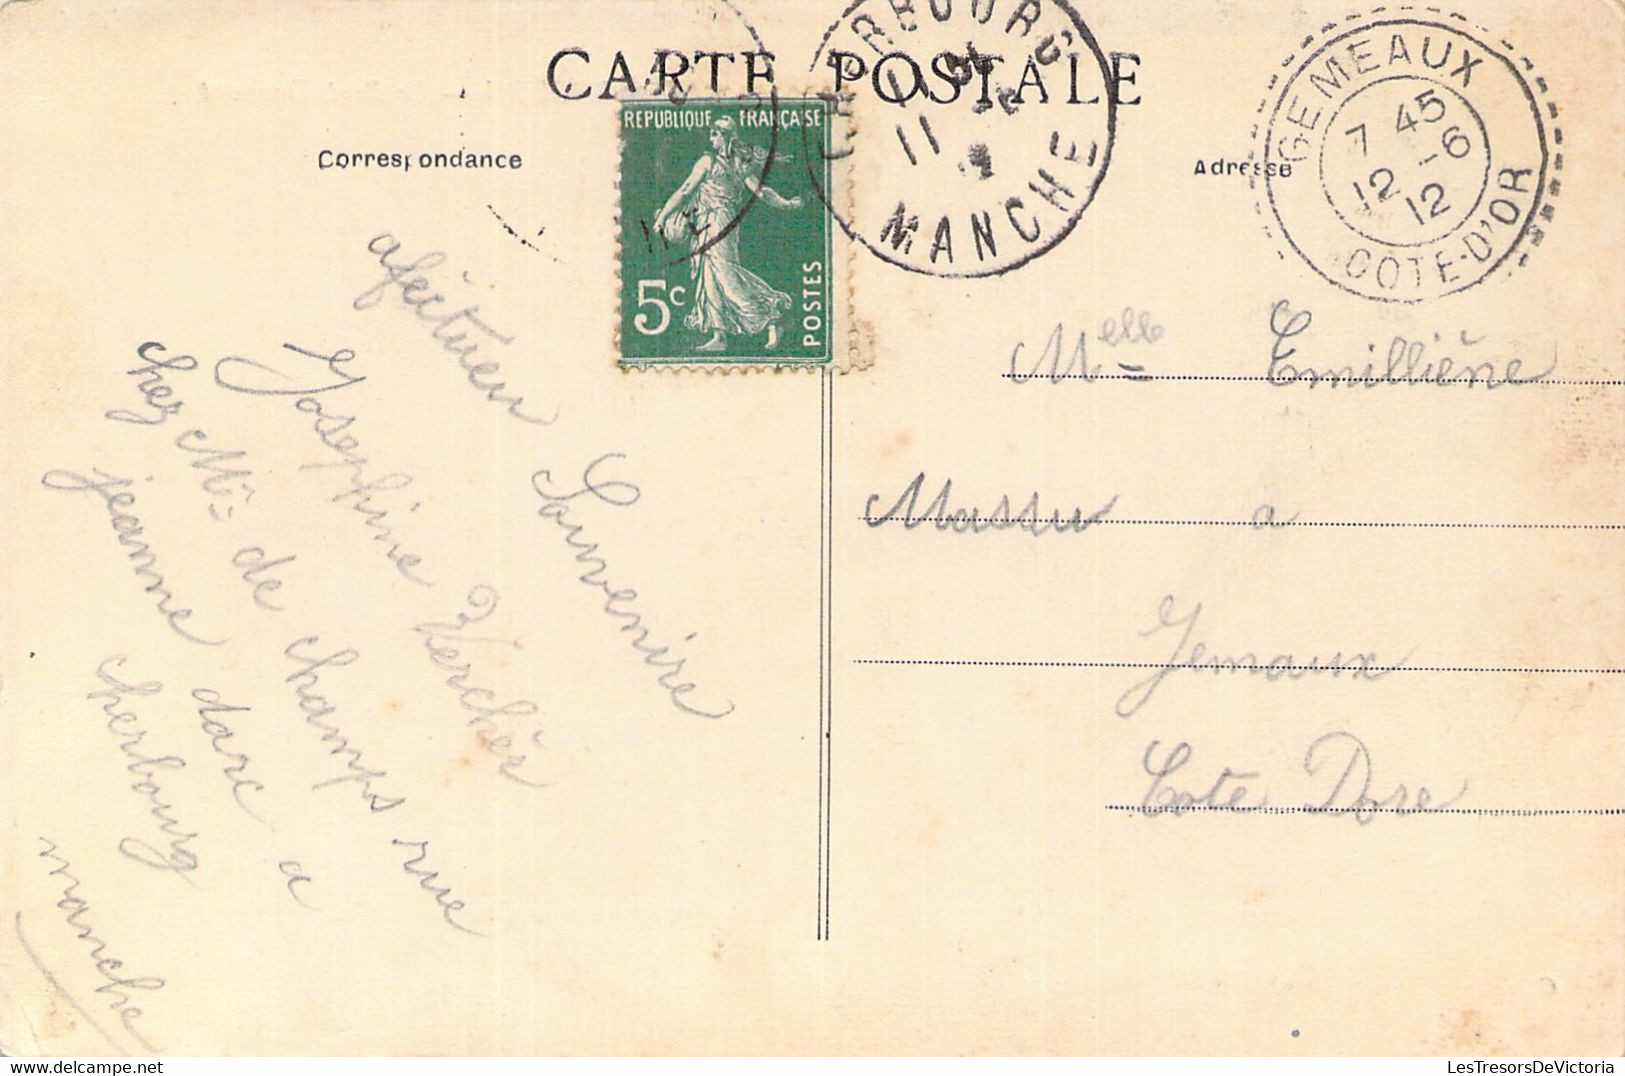 CARTE POSTALE
Correspondance
Adresse
REPUBLIQUE FRANÇAISE
5c
POSTES
MANCHE
11
GEMEAUX
7 45
12 - 6
12
COTE-D'OR
afectueu Souvenire
Josephine Verchér
chez Mme de champs rue
jeanne darc a
cherbourg
manche
Melle Emilliène
Massu a
Jemaux
Cote Dore
LesTresorsDeVictoria